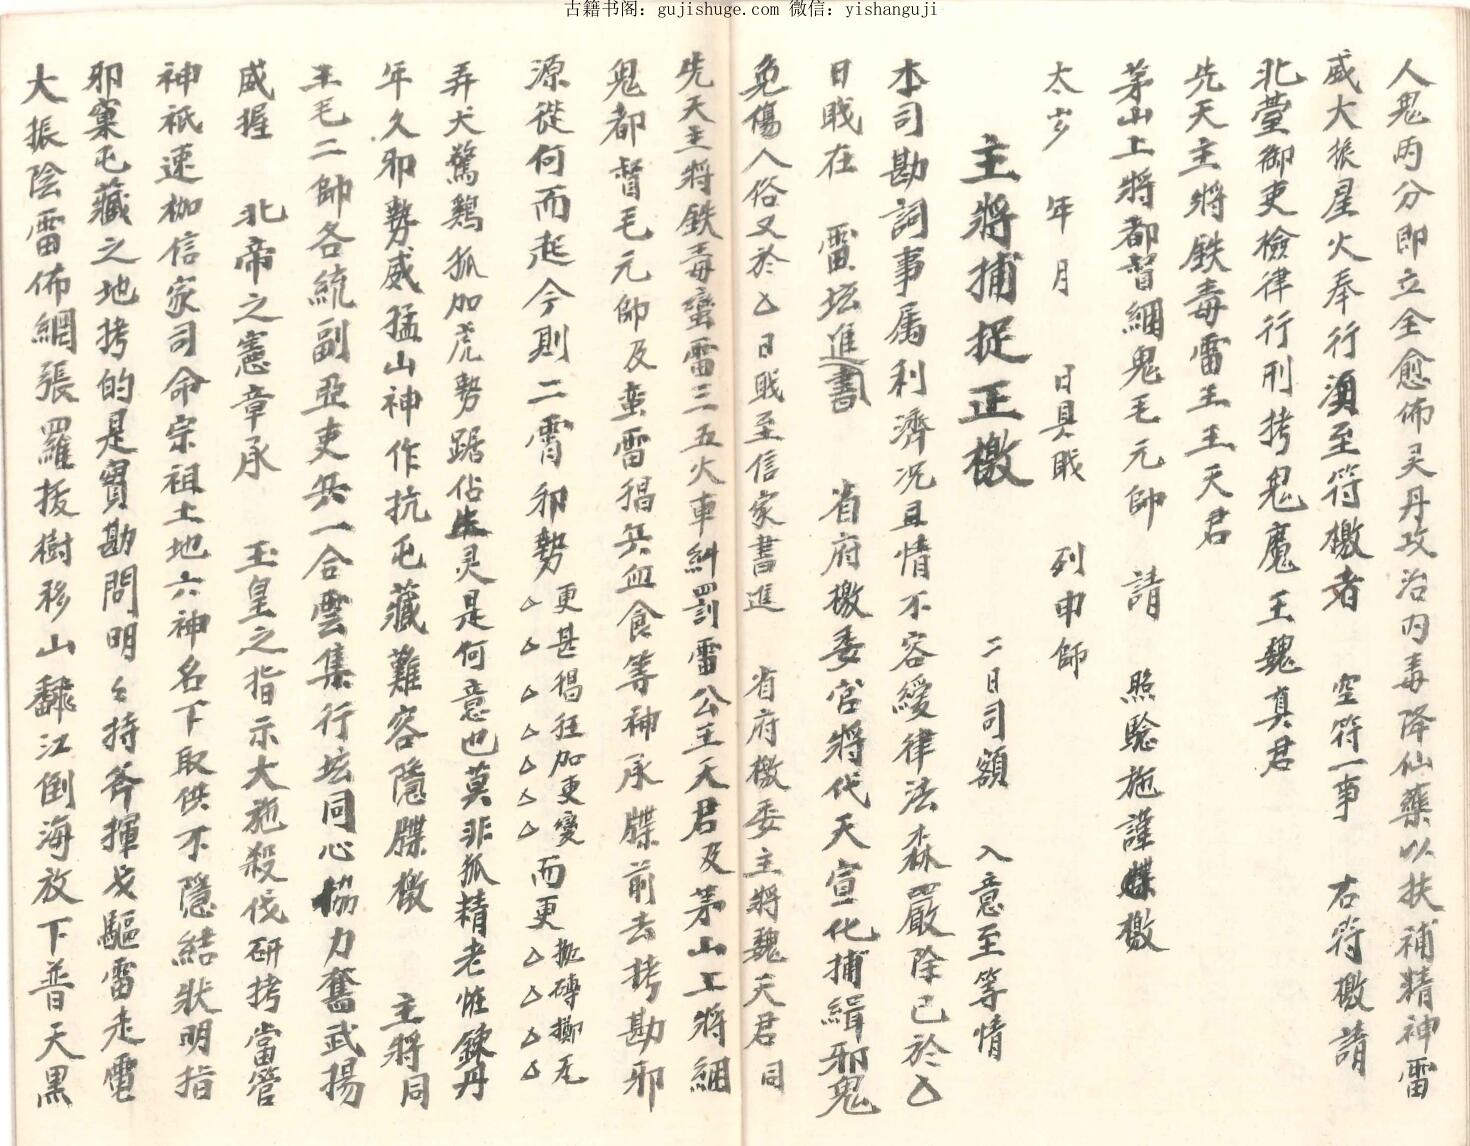 古籍书阁：gujishuge.com 微信：yishanguji
人鬼両分即立全愈佈灵丹攻治内毒降仙藥以扶補精神雷
威大振星火奉行須至符檄者 空符一事 右符檄請
北臺御吏檢律行刑拷鬼魔王魏真君
先天主將鉄毒雷王王天君
茅山上將都督綑鬼毛元帥 請 照驗施謹牒檄
太歲 年 月 日具戝 列申師
主將捕捉正檄 二日司額 入意至等情
本司勘詞事属利濟况且情不容緩律法森嚴除已於厶
日戝在 雷坛進書 省府檄委官將代天宣化捕緝邪鬼
免傷人俗又於厶日戝至信家書進 省府檄委主將魏天君同
先天主將鉄毒蛮雷三五火車糾罰雷公王天君及茅山上將綑
鬼都督毛元帥及蛮雷猖兵血食等神承牒前去拷勘邪
源從何而起今則二宵邪勢更甚猖狂加更變厶厶厶厶厶厶而更抛磚擲瓦厶厶厶厶厶
弄犬驚鷄狐加虎勢踞佔生灵是何意也莫非狐精老怪錬丹
年久邪勢威猛山神作抗屯藏難容隱牒檄 主將同
王毛二帥各統副亞吏兵一合雲集行坛同心協力奮武揚
威握 北帝之憲章承 玉皇之指示大施殺伐研拷當管
神祇速枷信家司命宗祖土地六神名下取供不隱結狀明指
邪窠屯藏之地拷的是實勘問明々持斧揮戈驅雷走電
大振陰雷佈網張羅拔樹移山飜江倒海放下普天黑